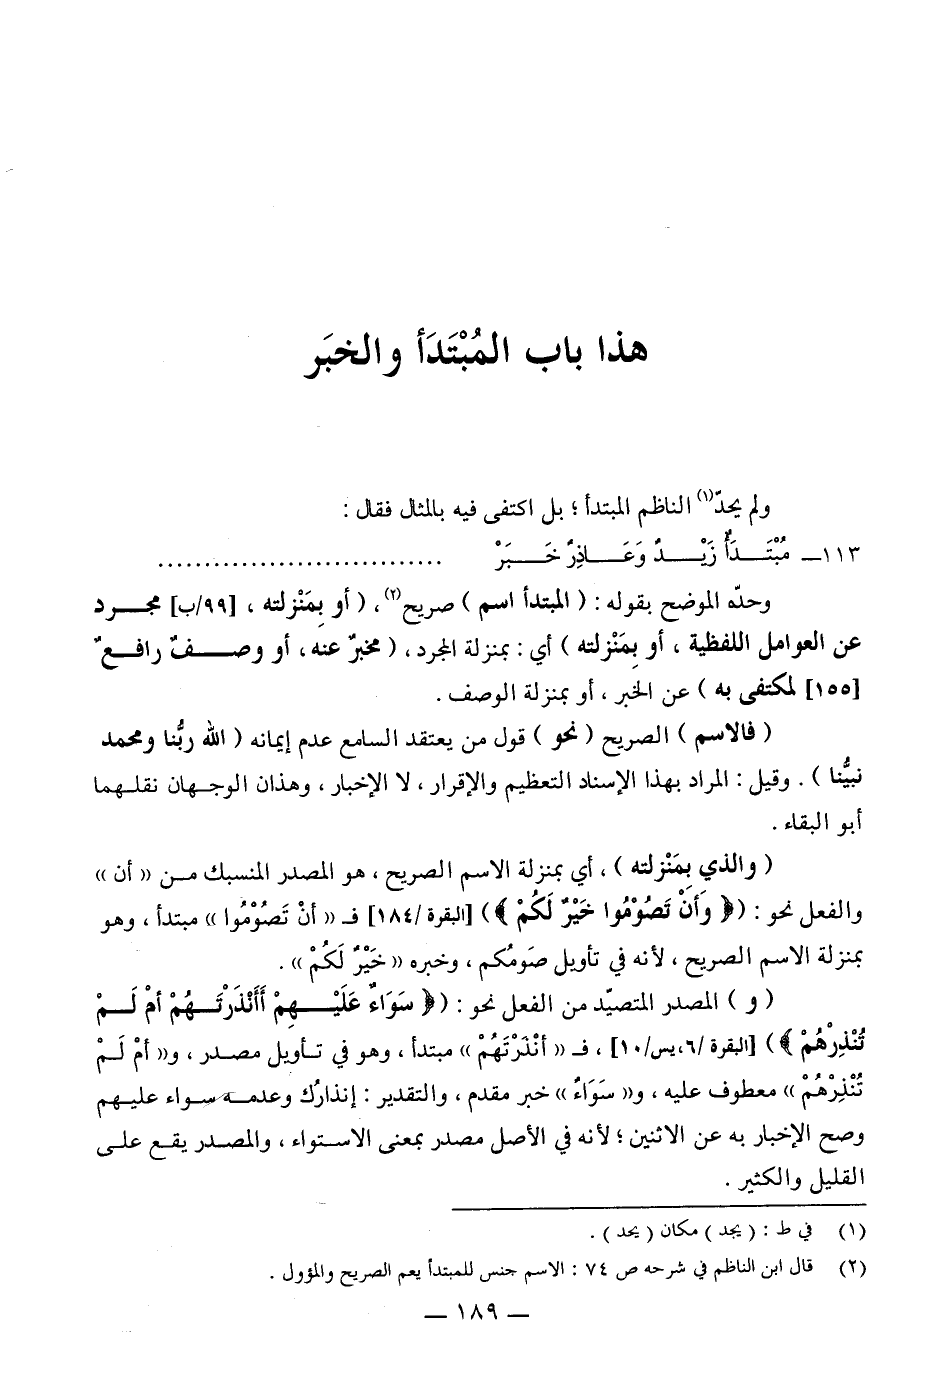 هذا باب المُبْتَدَأ والخبَر
ولم يحدّ(١) الناظم المبتدأ ؛ بل اكتفى فيه بالمثال فقال :
١١٣ــ مُبْتَــدَأٌ زَيْــــدٌ وَعَــــاذِرٌ خَــــبَرْ ..............................
وحدّه الموضح بقوله : ( المبتدأ اسم ) صريح(٢)، ( أو بِمَنْزلته ، [٩٩/ب] مجــرد
عن العوامل اللفظية ، أو بِمَنْزلته ) أي : بمنزلة المجرد ، ( مخبرٌ عنه، أو وصــــفٌ رافــعٌ
[١٥٥] لمكتفى به ) عن الخبر ، أو بمنزلة الوصف .
( فالاسم ) الصريح ( نحو ) قول من يعتقد السامع عدم إيمانه ( الله ربُّنا ومحمد
نبيُّنا ) . وقيل : المراد بهذا الإسناد التعظيم والإقرار ، لا الإخبار ، وهذان الوجهان نقلهما
أبو البقاء .
( والذي بِمَنْزلته ) ، أي بمنزلة الاسم الصريح ، هو المصدر المنسبك مــن « أن »
والفعل نحو : (﴿ وَأَنْ تَصُوْمُوا خَيْرٌ لَكُمْ ﴾) [البقرة /١٨٤] فـ « أنْ تَصُوْمُوا » مبتدأ ، وهو
بمنزلة الاسم الصريح ، لأنه في تأويل صَومُكم ، وخبره « خَيْرٌ لَكُمْ » .
( و ) المصدر المتصيّد من الفعل نحو : (﴿ سَوَاءٌ عَلَيْــــهِمْ أَأَنْذَرْتَــهُمْ أمْ لَــمْ
تُنْذِرْهُمْ ﴾) [البقرة /٦،يس/١٠] ، فـ « أنْذَرْتَهُمْ » مبتدأ ، وهو في تــأويل مصــدر ، و« أمْ لَــمْ
تُنْذِرْهُمْ » معطوف عليه ، و« سَوَاءٌ » خبر مقدم ، والتقدير : إنذارُك وعدمــه سـواء عليـهم
وصح الإخبار به عن الاثنين ؛ لأنه في الأصل مصدر بمعنى الاستواء ، والمصــدر يقــع علــى
القليل والكثير .
(١) في ط : ( يجد ) مكان ( يحد ) .
(٢) قال ابن الناظم في شرحه ص ٧٤ : الاسم جنس للمبتدأ يعم الصريح والمؤول .
ــ ١٨٩ ــ